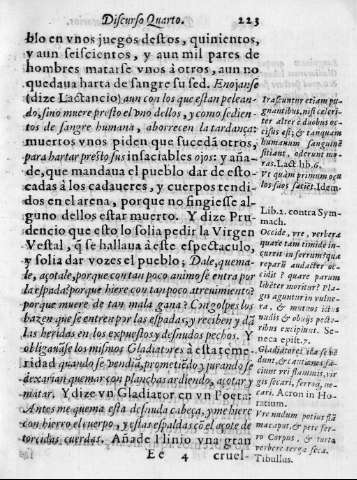 Discurso Quarto. 223
blo en vnos juegos destos, quinientos,
y aun seiscientos, y aun mil pares de
hombres matarse vnos à otros, aun no
quedaua harta de sangre su sed. Enojanse
(dize Lactancio) aun con los que estan pelean-
do, sino muere presto el vno dellos, y como sedien-
tos de sangre humana, aborrecen la tardança:
muertos vnos piden que sucedā otros,
para hartar presto sus insaciables ojos: y aña-
de, que mandaua el pueblo dar de esto-
cadas à los cadaueres, y cuerpos tendi-
dos en el arena, porque no fingiesse al-
guno dellos estar muerto. Y dize Pru-
dencio que esto lo solia pedir la Virgen
Vestal, q̃ se hallaua à este espectaculo,
y solia dar vozes el pueblo; Dale, quema-
le, açotale, porque con tan poco animo se entra por
la espada? porque hiere con tan poco atreuimiento?
porque muere de tan mala gana? Con golpes los
hazen que se entren por las espadas, y reciben y dā
las heridas en los expuestos y desnudos pechos. Y
obligauāse los mismos Gladiatores à esta teme-
ridad quando se vendiā, prometiēdo, y jurando se
dexarian quemar con planchas ardiendo, açotar, y
matar. Y dize vn Gladiator en vn Poeta:
Antes me quema esta desnuda cabeça, y me hiere
con hierro el cuerpo, y estas espaldas cō el açote de
torcidas cuerdas. Añade Plinio vna gran
Ee 4 cruel-
Irascuntur etiam pu-
gnantibus, nisi celeri-
ter alter è duobus oc-
cisus est; & tanquam
humanum sanguinē
sitiant, oderunt mo-
ras. Lact. lib. 6.
Vt quàm primum ocu
los suos satiet. Idem.
Lib. 2. contra Sym-
mach.
Occide, vre, verbera
quare tam timidè in-
currit in ferrum? qua
re parū audacter oc-
cidit? quare parum
libēter moritur? Pla-
gis aguntur in vulne-
ra, & mutuos ictus
nudis & obuijs pecto-
ribus excipiunt. Se-
neca epist. 7.
Gladiatores
sancimus vri flammis, vir-
gis secari, ferroq; ne-
cari. Acron in Ho-
ratium.
Vre nudum potius flā
ma caput, & pete fer-
ro Corpus, & torta
verbere terga seca.
Tibullus.